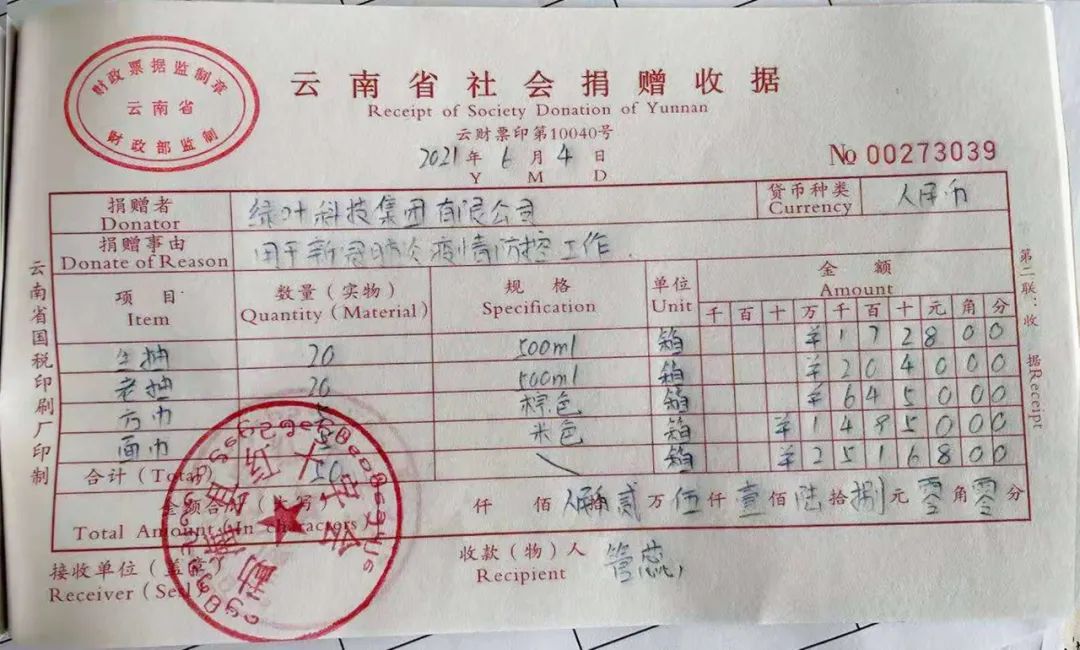 财政票据监制章
云南省
财政部监制
云南省社会捐赠收据
Receipt of Society Donation of Yunnan
云财票印第10040号
2021年6月4日
Y M D
No 00273039
捐赠者 绿叶科技集团有限公司 货币种类 人民币
Donator Currency
捐赠事由 用于新冠肺炎疫情防控工作.
Donate of Reason
项目 数量(实物) 规格 单位 金额
Item Quantity(Material) Specification Unit Amount
千 百 十 万 千 百 十 元 角 分
生抽 20 500ml 箱 ¥ 1 7 2 8 0 0
老抽 20 500ml 箱 ¥ 2 0 4 0 0 0
方巾 5 棕色 箱 ¥ 6 4 5 0 0 0
面巾 5 米色 箱 ¥ 1 4 9 5 0 0 0
合计(Total) 50 箱 ¥ 2 5 1 6 8 0 0
金额合计(大写) 仟 佰 贰万伍仟壹佰陆拾捌元零角零分
Total Amount(In characters)
接收单位(盖章) 收款(物)人 管蕊
Receiver(Seal) Recipient
云南省国税印刷厂印制
第二联:收据Receipt